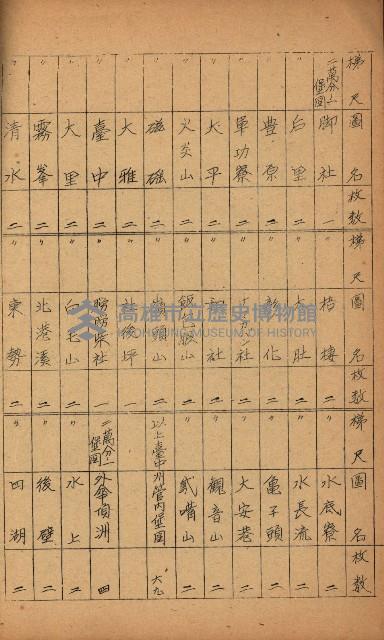 梯尺 圖名 枚數
二萬分一堡圖 脚社 一
〃 后里 二
〃 豊原 二
〃 軍功寮 二
〃 大平 二
〃 火炎山 二
〃 磁磘 二
〃 大雅 二
〃 臺中 二
〃 大里 二
〃 霧峯 二
〃 清水 二
梯尺 圖名 枚數
〃 梧棲 二
〃 大肚 二
〃 彰化 二
〃 社 二
〃 社 二
〃 山 二
〃 崁頭山 二
〃 社後坪 一
〃 社 一
〃 白毛山 二
〃 北港溪 二
〃 東勢 二
梯尺 圖名 枚數
〃 水底寮 二
〃 水長流 二
〃 亀子頭 二
〃 大安港 二
〃 觀音山 二
〃 貳嘴山 二
以上臺中州管内堡圖 六九
二萬分一堡圖 外傘頂洲 四
〃 水上 二
〃 後壁 二
〃 四湖 二
高雄市立歷史博物館
KAOHSIUNG MUSEUM OF HISTORY